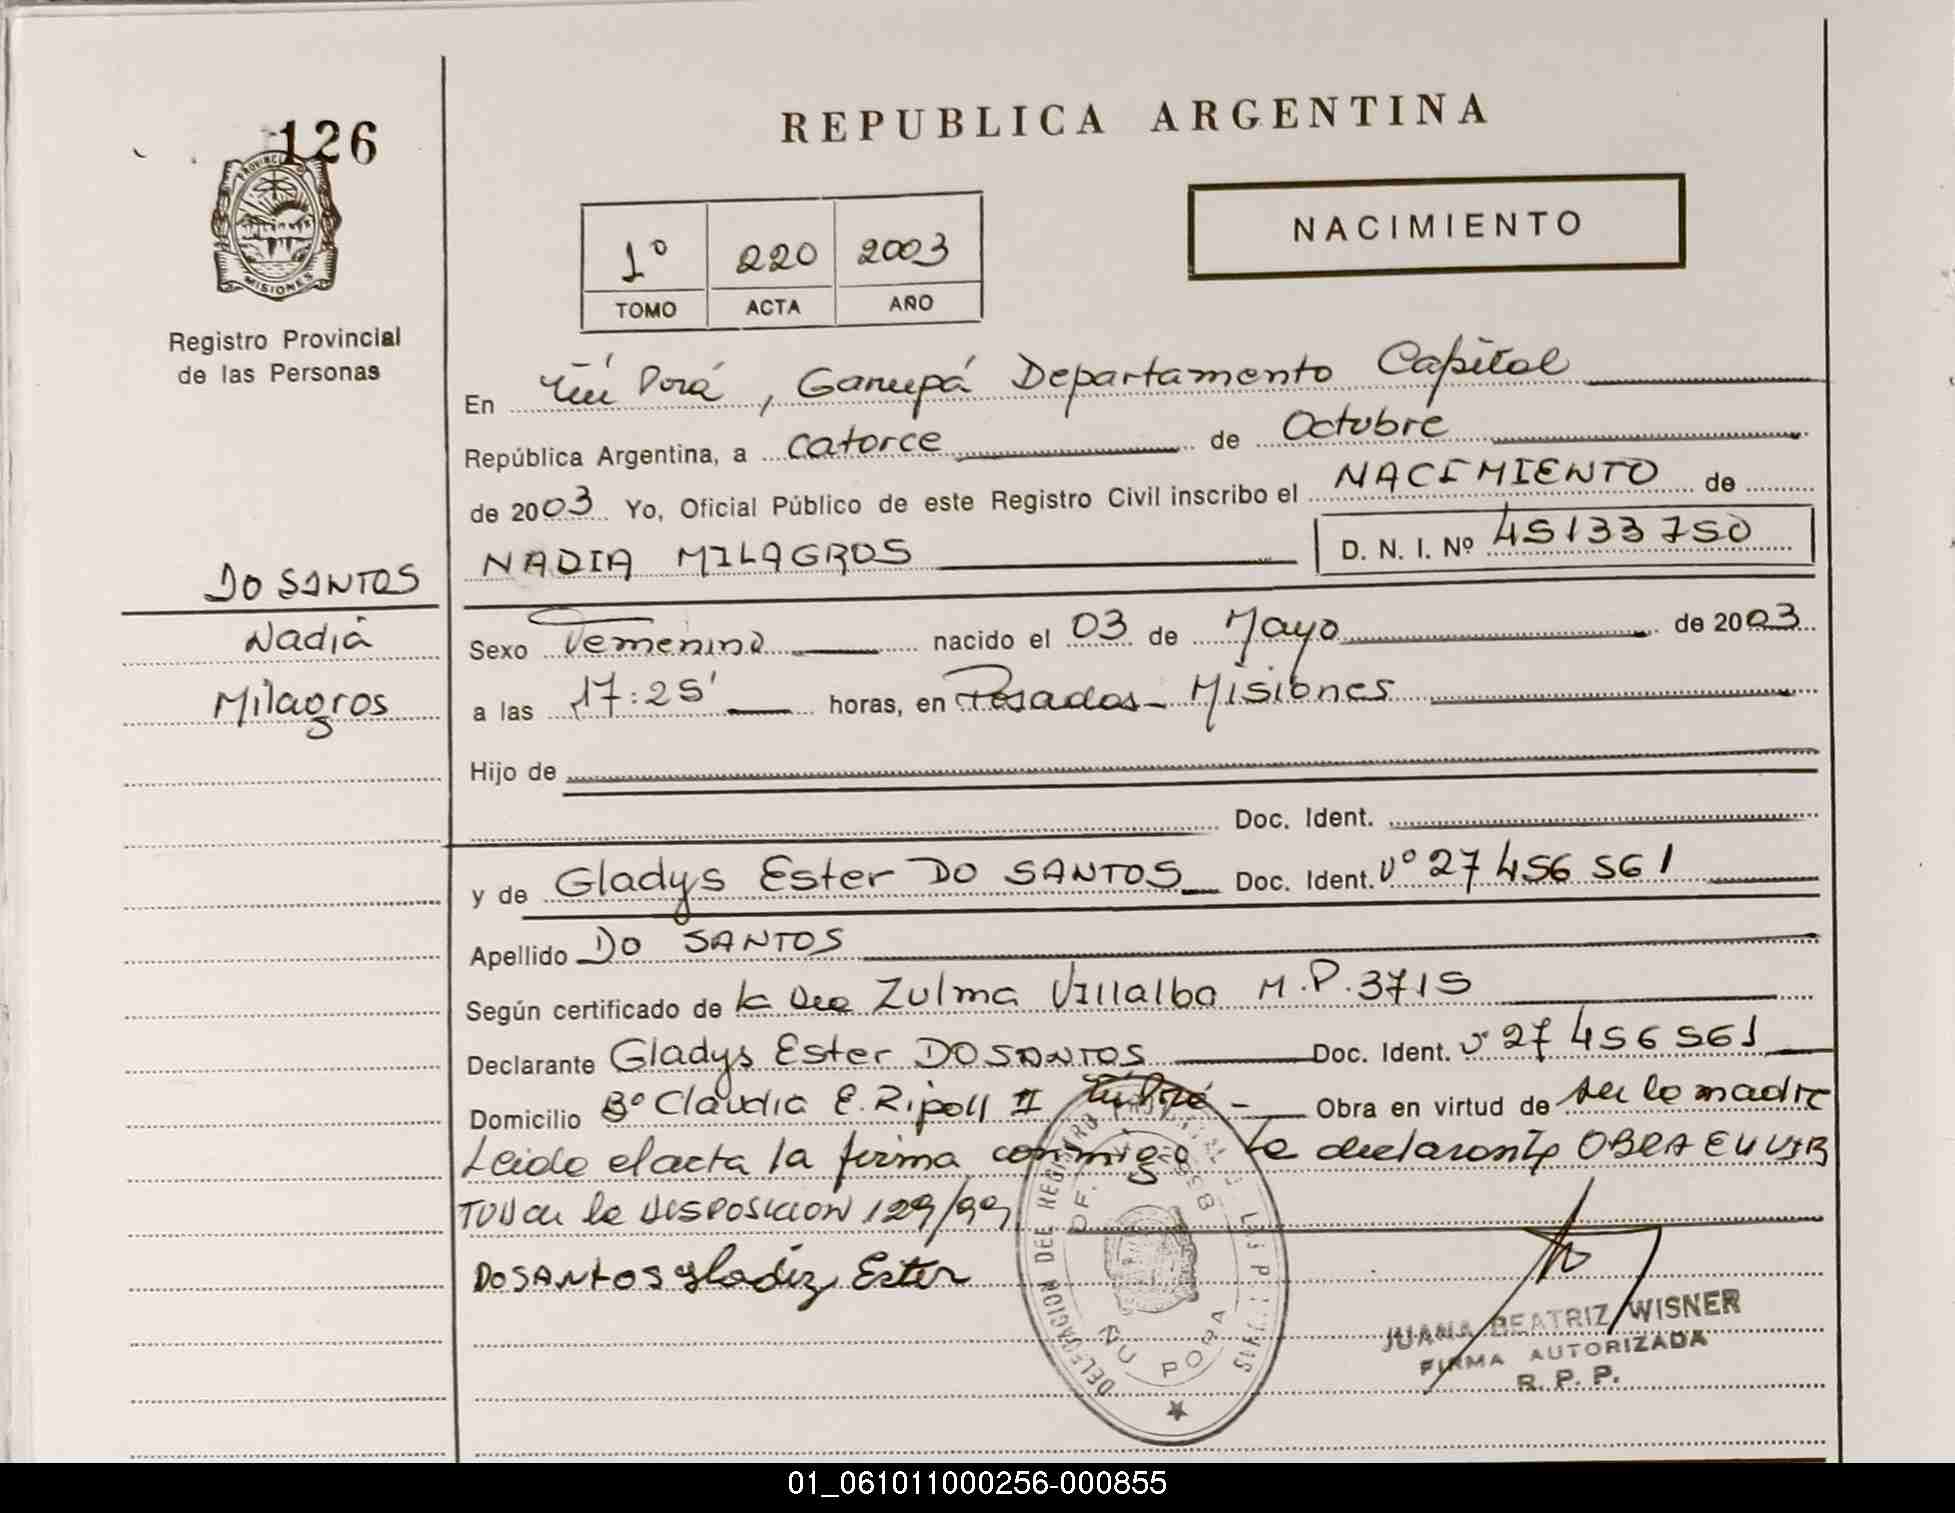 126
PROVINCIA D
MISIONES
Registro Provincial
de las Personas
REPUBLICA ARGENTINA
NACIMIENTO
1º 220 2003
TOMO ACTA AÑO
En Ñú Porá, Garupá Departamento Capital
República Argentina, a catorce de Octubre
de 2003 Yo, Oficial Público de este Registro Civil inscribo el NACIMIENTO de
NADIA MILAGROS D. N. I. Nº 45133750
DO SANTOS
Nadia
Milagros
Sexo Femenino nacido el 03 de Mayo de 2003
a las 17:25' horas, en Posadas - Misiones
Hijo de
Doc. Ident.
y de Gladys Ester DO SANTOS Doc. Ident. Nº 27 456 561
Apellido DO SANTOS
Según certificado de la Dra Zulma Villalba M.P. 3715
Declarante Gladys Ester DO SANTOS Doc. Ident. Nº 27 456 561
Domicilio Bº Claudia E. Ripoll II Ñú Porá - Obra en virtud de ser la madre
Leida el acta la firma conmigo la declarante OBRA EN VIR
TUD de la DISPOSICION 129/99
DOSANtOS gladiz Ester
DELEGACION DEL REGISTRO
ÑU PORA
JUANA BEATRIZ WISNER
FIRMA AUTORIZADA
R. P. P.
01_061011000256-000855